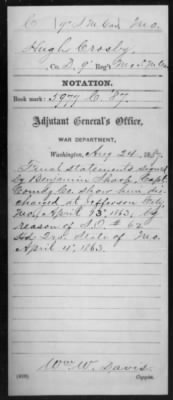 C 9 S. M. Cav. Mo.
Hugh Crosby,
Co. D, 9 Reg't Mo. S. M. Cav.
NOTATION.
Book mark: 1977 C. 87.
Adjutant General's Office,
WAR DEPARTMENT,
Washington, Aug 24, 1887.
Final statements signed
by Benjamin Sharp, Capt.
Comdg Co. show him dis-
charged at Jefferson City,
Mo., April 13, 1863, by
reason of S.O. # 62
Hd Qrs. State of Mo.
April 4, 1863.
Wm W. Davis.
Copyist.